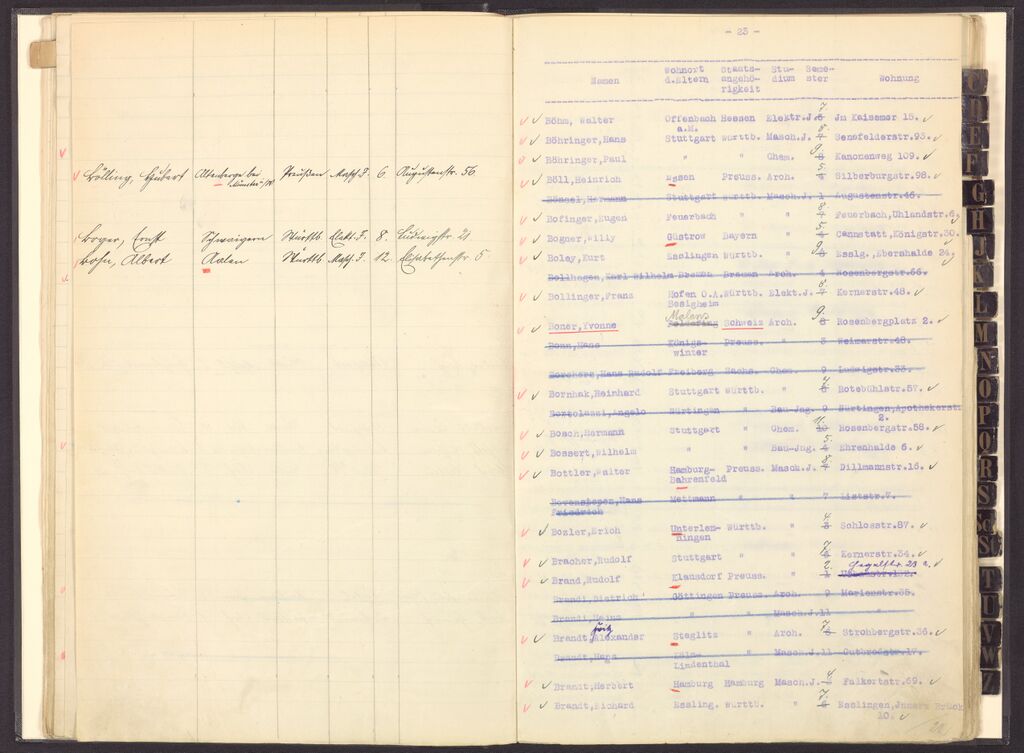 Bölling, Hubert Altenberge bei Preußen Masch.J. 6 Augustenstr. 56
Münster i/W
Boger, Ernst Schwaigern Württb. Elekt.J. 8. Ludwigstr. 21
Bohn, Albert Aalen Württb. Masch.J. 12. Elisabethenstr. 5
- 23 -
Namen Wohnort Staats- Stu- Seme- Wohnung
d.Eltern angehö- dium ster
rigkeit
Böhm, Walter Offenbach Hessen Elektr.J. 7. Im Kaisemer 15.
a.M.
Böhringer, Hans Stuttgart Württb. Masch.J. 8. Senefelderstr.93.
Böhringer, Paul " " Chem. 9. 8 Kanonenweg 109.
Böll, Heinrich Essen Preuss. Arch. 5. 4 Silberburgstr.98.
Stuttgart Württb. Masch.J. 1 Augustenstr.46.
Bofinger, Eugen Feuerbach " " 8. 7 Feuerbach, Uhlandstr.6
Bogner, Willy Güstrow Bayern " 5. 4 Cannstatt, Königstr.30.
Boley, Kurt Esslingen Württb. " 9. 8 Esslg., Ebershalde 24
Bollhagen, Karl Wilhelm Bremen Bremen Arch. 4 Rosenbergstr.56.
Bollinger, Franz Hofen O.A. Württb. Elekt.J. 8. 7 Kernerstr.48.
Besigheim
Malans
Boner, Yvonne Schweiz Arch. 9. 8 Rosenbergplatz 2.
Bonn, Hans Königs- Preuss. " 3 Weimarstr.48.
winter
Borchers, Hans Rudolf Freiberg Sachs. Chem. 9 Ludwigstr.33.
Bornhak, Reinhard Stuttgart Württb. " Rotebühlstr.57.
Bortoluzzi, Angelo Nürtingen " Bau-Jng. 9 Nürtingen, Apothekerst
2.
Bosch, Hermann Stuttgart " Chem. 11. 10 Rosenbergstr.58.
Bossert, Wilhelm " " Bau-Jng. 5. 4 Ehrenhalde 5.
Bottler, Walter Hamburg- Preuss. Masch.J. 8. 7 Dillmannstr.15.
Bahrenfeld
Bovensiepen, Hans Mettmann " " 7 Liststr.7.
Friedrich
Bozler, Erich Unterlen- Württb. " 4. 3 Schlosstr.87.
ningen
Bracher, Rudolf Stuttgart " " 7. Kernerstr.34.
Hegelstr. 23
Brand, Rudolf Klausdorf Preuss. " 2. 1
Brandi, Dietrich Göttingen Preuss. Arch. 9 Marienstr.35.
Brandi, Heinz " " Masch.J. 11 "
Fritz
Brandt, Alexander Steglitz " Arch. 7. Strohbergstr.36.
Brandt, Hans Köln- " Masch.J. 11 Gutbrodstr.17.
Lindenthal
Brandt, Herbert Hamburg Hamburg Masch.J. Falkertstr.69.
Brandt, Richard Essling. Württb. " 7. Esslingen, Innere Brück
10.
C
H
E
F
G
H
J
K
L
M
N
O
P
Q
R
S
Sc
S
T
U
V
W
Z